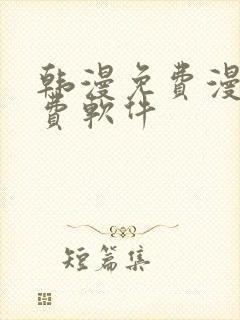 韩漫免費漫
費軟件
短篇集